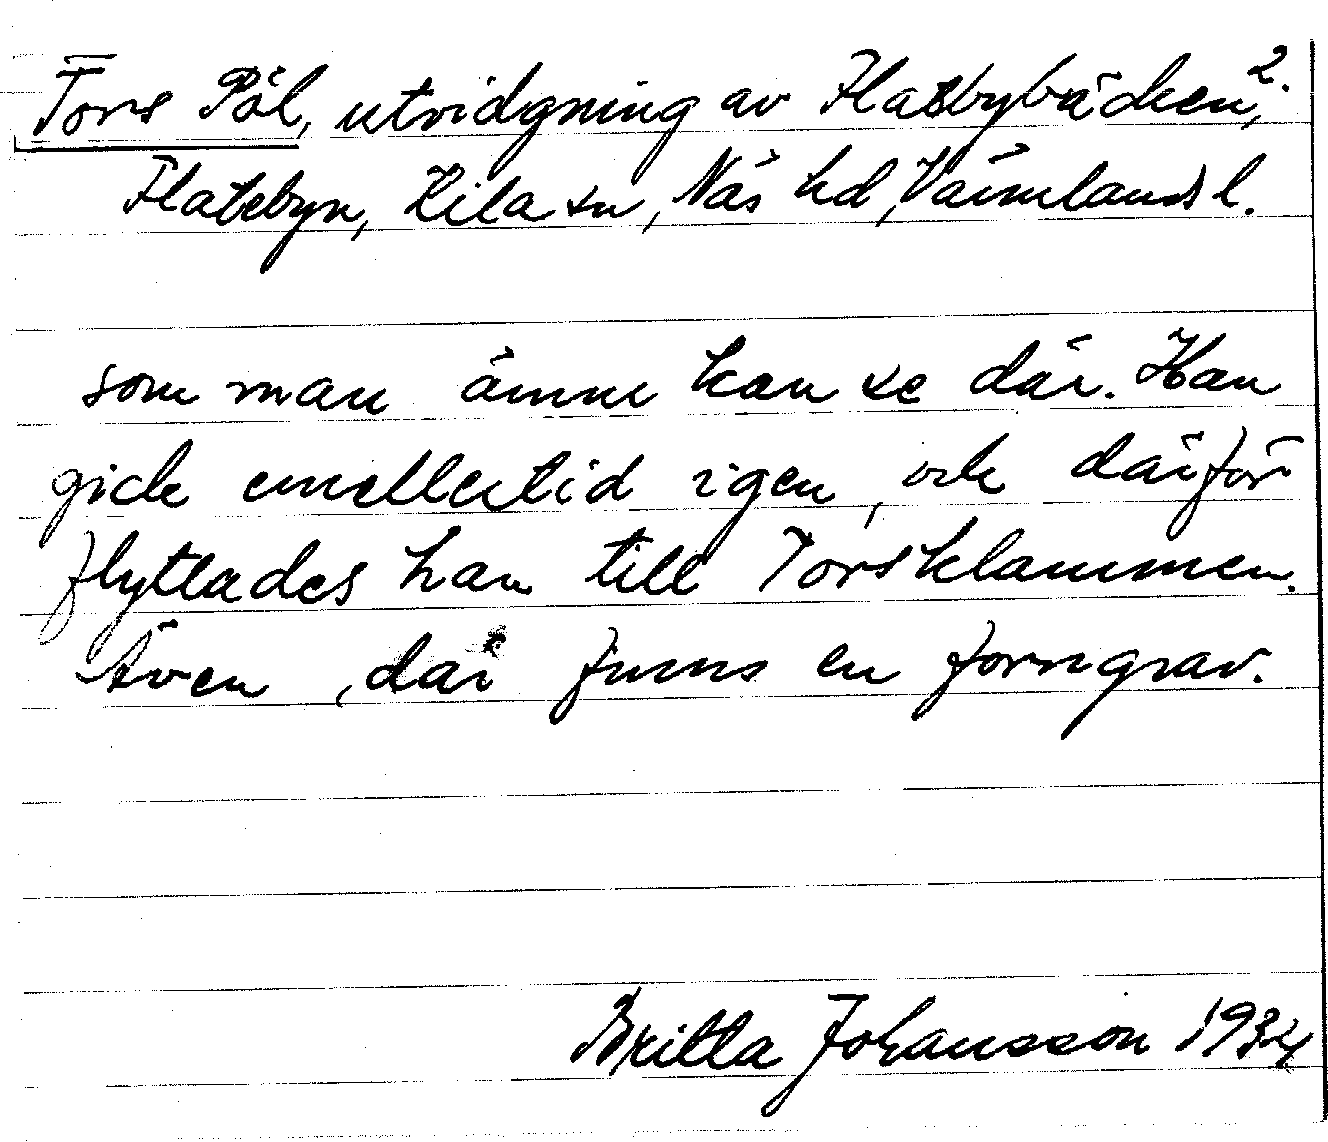 Tors Pöl, utvidgning av Flatbybäcken, 2.
Flatebyn, Kila sn, Näs hd, Värmlands l.
som man ännu kan se där. Han
gick emellertid igen, och därför
flyttades han till Torsklammen.
Även där finns en forngrav.
Britta Johansson 1934